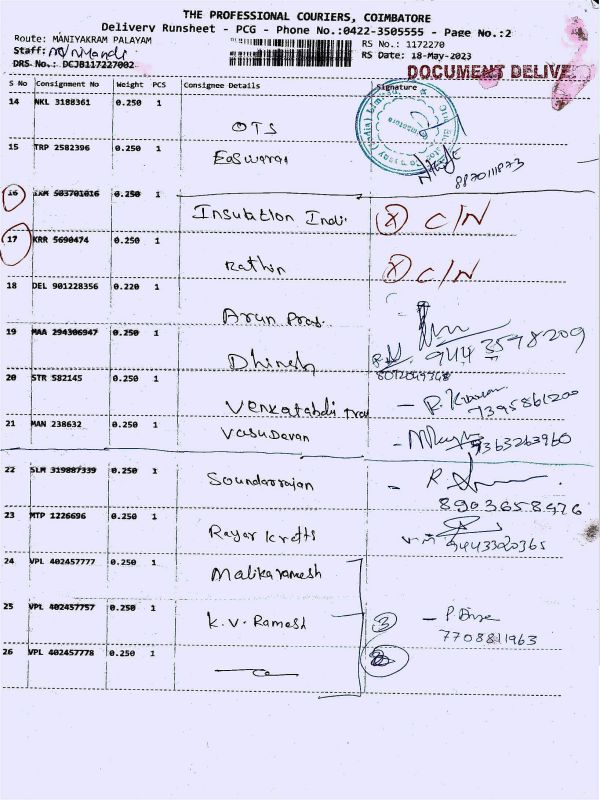 THE PROFESSIONAL COURIERS, COIMBATORE
Delivery Runsheet - PCG - Phone No.:0422-3505555 - Page No.:2
Route: MANIYAKRAM PALAYAM
RS No.: 1172270
Staff:
RS Date: 18-May-2023
DRS No.: DCJB117227002
DOCUMENT DELIVE
S No Consignment No Weight PCS Consignee Details Signature
14 NKL 3188361 0.250 1 OTS
15 TRP 2582396 0.250 1 Easwaran
8870111873
16 IXM 503701016 0.250 1 Insulation Indi. X C/N
17 KRR 5690474 0.250 1 Rathin X C/N
18 DEL 901228356 0.220 1 Arun Pras.
9443598209
19 MAA 294306947 0.250 1 Dhinesh
20 STR 582145 0.250 1 Venkatabdi - R. Kumaran
7395861200
21 MAN 238632 0.250 1 Vasudevan - 9363263960
22 SLM 319887339 0.250 1 Soundarrajan - R.
8903658976
23 MTP 1226696 0.250 1 Rayar krafts
9443320365
24 VPL 402457777 0.250 1 Malikaramesh
25 VPL 402457757 0.250 1 K.V. Ramesh 3
7708811963
26 VPL 402457778 0.250 1